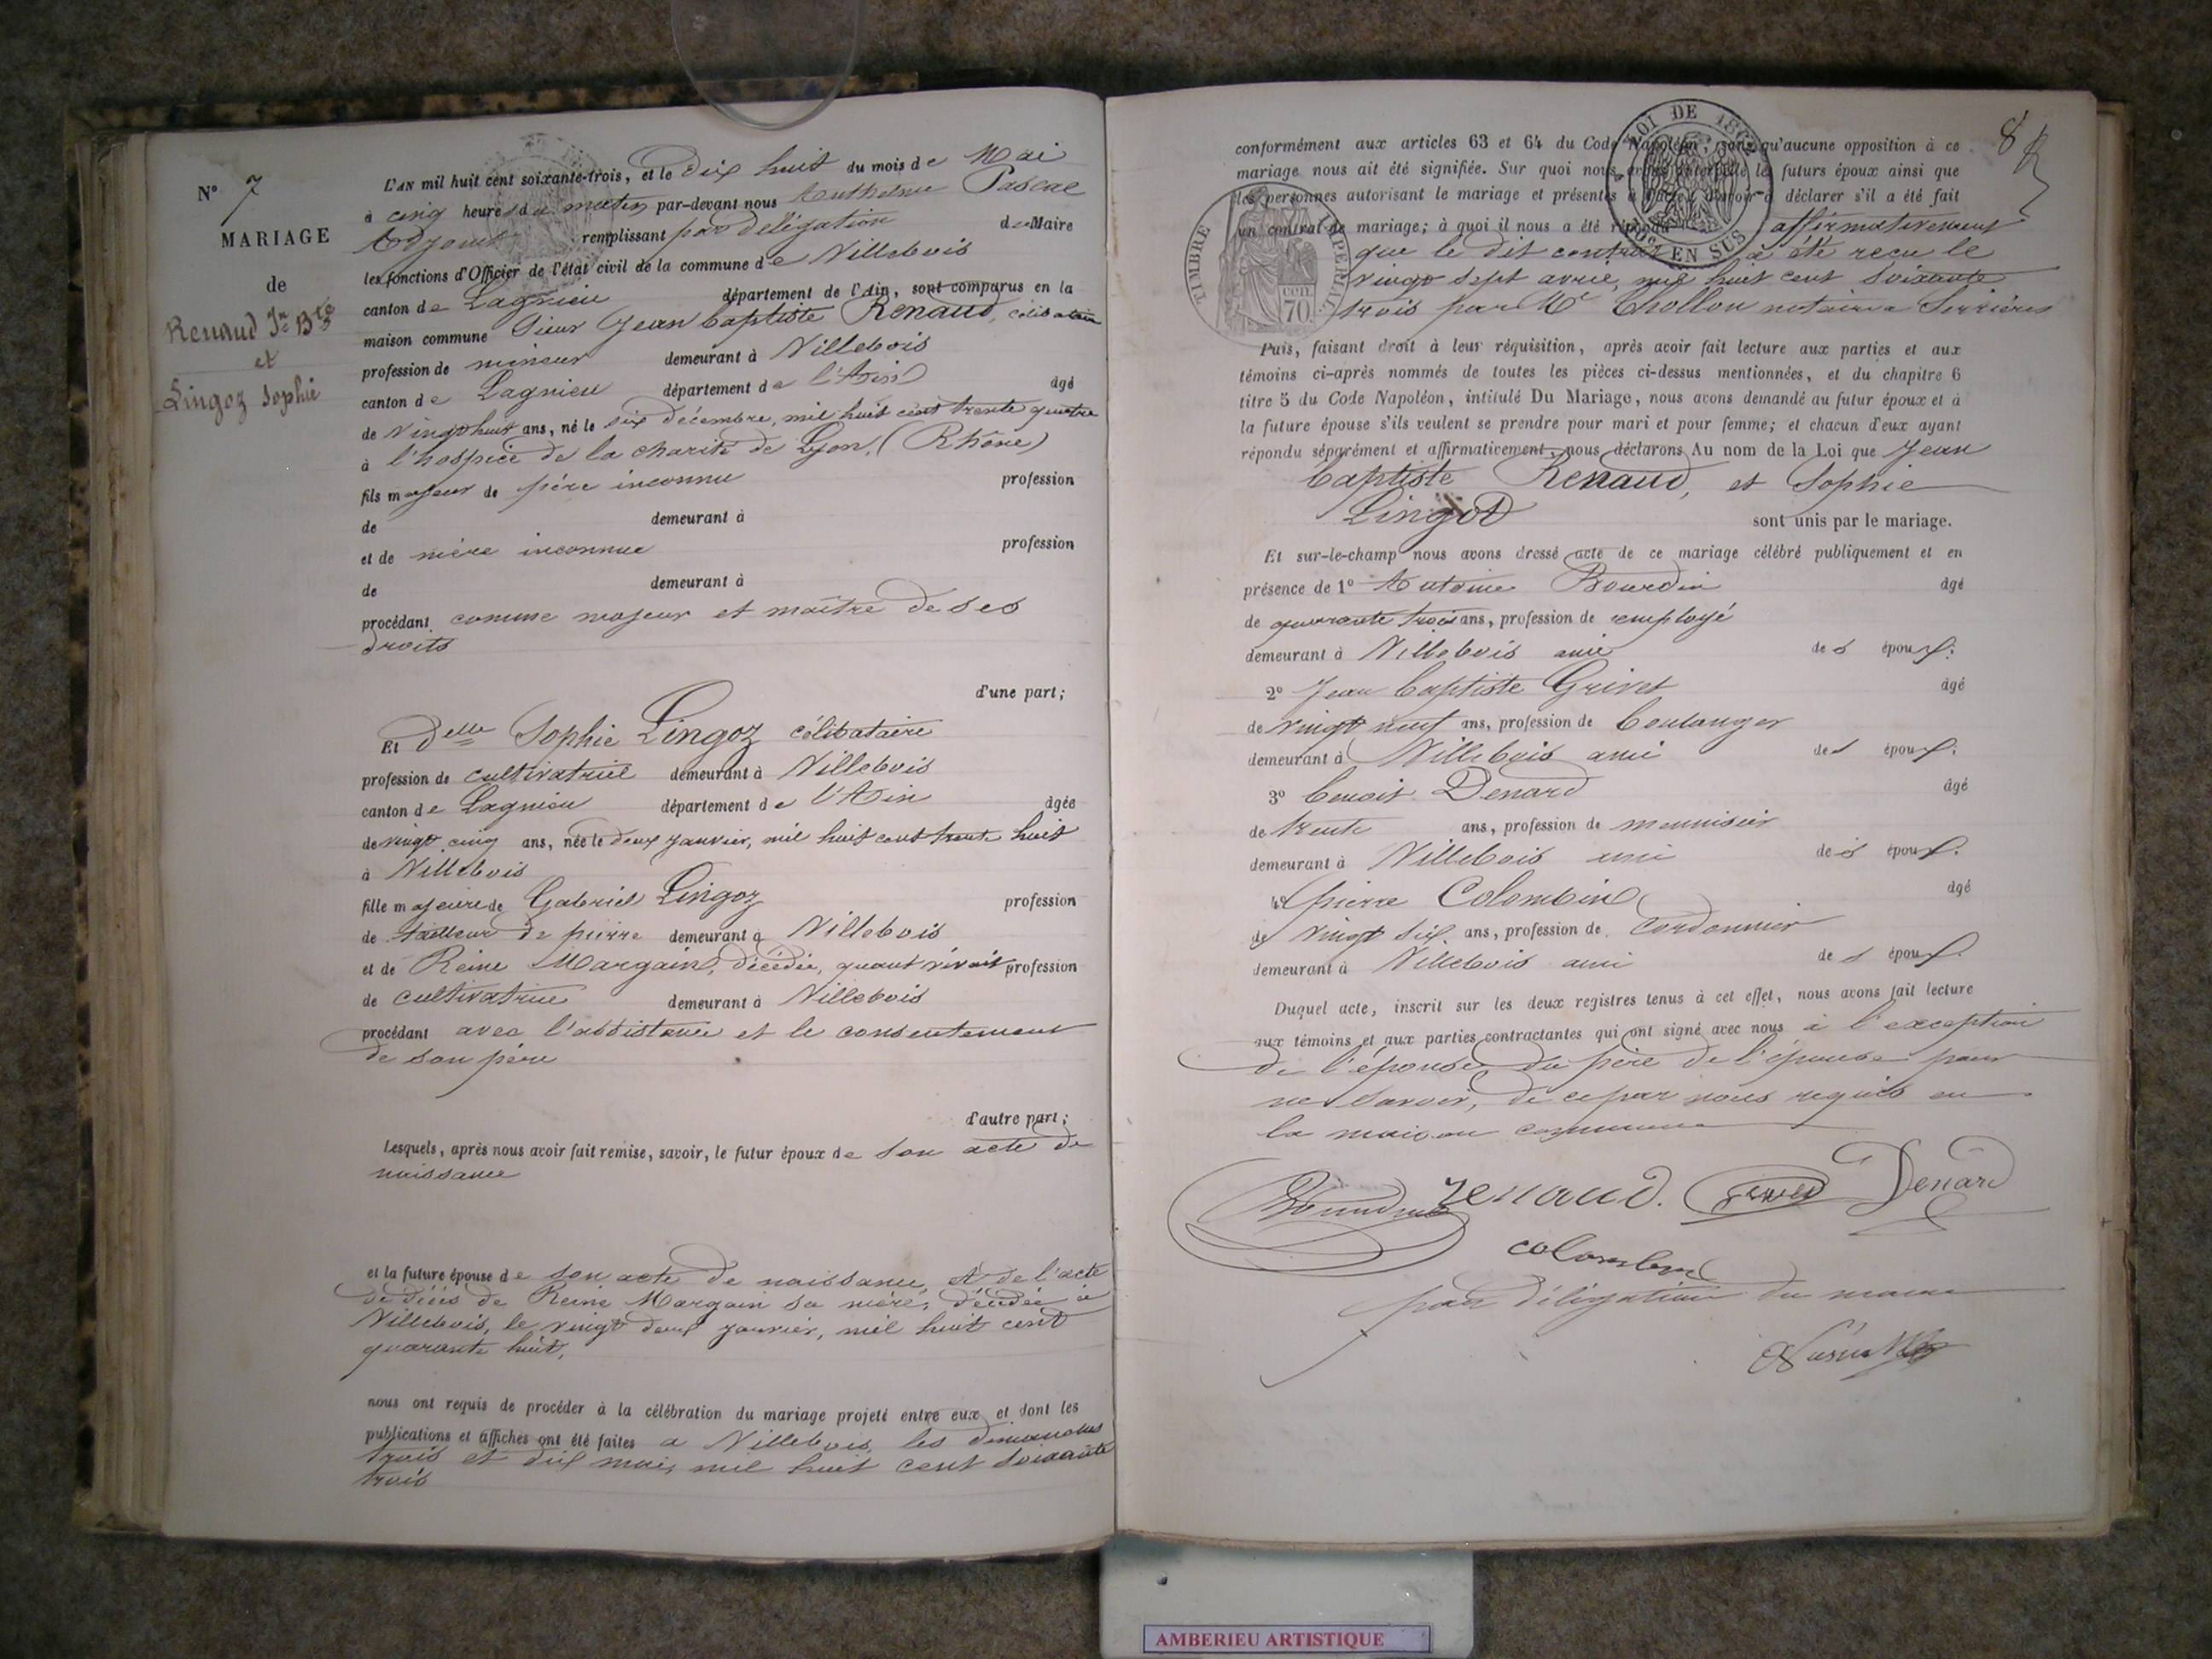 N° 7
MARIAGE
de
Renaud Jn Bte
et
Lingoz Sophie
L'AN mil huit cent soixante-trois, et le dix huit du mois de Mai
à cinq heures du matin par-devant nous Anthelme Pascal
Adjoint remplissant par délégation du Maire
les fonctions d'Officier de l'état civil de la commune de Villebois
canton de Lagnieu département de l'Ain, sont comparus en la
maison commune Sieur Jean baptiste Renaud, célibataire
profession de mineur demeurant à Villebois
canton de Lagnieu département de l'Ain âgé
de vingt huit ans, né le six décembre, mil huit cent trente quatre
à l'hospice de la charité de Lyon, (Rhône)
fils majeur de père inconnu profession
de demeurant à
et de mère inconnue profession
de demeurant à
procédant comme majeur et maître de ses
droits
d'une part;
Et Delle Sophie Lingoz célibataire
profession de cultivatrice demeurant à Villebois
canton de Lagnieu département de l'Ain âgée
de vingt cinq ans, née le deux janvier, mil huit cent trente huit
à Villebois
fille majeure de Gabriel Lingoz profession
de tailleur de pierre demeurant à Villebois
et de Reine Margain, décédée, quant vivait profession
de cultivatrice demeurant à Villebois
procédant avec l'assistance et le consentement
de son père
d'autre part;
Lesquels, après nous avoir fait remise, savoir, le futur époux de son acte de
naissance
et la future épouse de son acte de naissance, et de l'acte
de décès de Reine Margain sa mère, décédée à
Villebois, le vingt deux janvier, mil huit cent
quarante huit,
nous ont requis de procéder à la célébration du mariage projeté entre eux et dont les
publications et affiches ont été faites a Villebois, les dimanches
trois et dix mai, mil huit cent soixante
trois
8
LOI DE 1862
EN SUS
TIMBRE IMPERIAL
70
conformément aux articles 63 et 64 du Code Napoléon, sans qu'aucune opposition à ce
mariage nous ait été signifiée. Sur quoi nous avons interpellé les futurs époux ainsi que
les personnes autorisant le mariage et présentes à l'acte, d'avoir à déclarer s'il a été fait
un contrat de mariage; à quoi il nous a été répondu affirmativement
que le dit contrat a été reçu le
vingt sept avril, mil huit cent soixante
trois par Me Chollon notaire a Serrières
Puis, faisant droit à leur réquisition, après avoir fait lecture aux parties et aux
témoins ci-après nommés de toutes les pièces ci-dessus mentionnées, et du chapitre 6
titre 5 du Code Napoléon, intitulé Du Mariage, nous avons demandé au futur époux et à
la future épouse s'ils veulent se prendre pour mari et pour femme; et chacun d'eux ayant
répondu séparément et affirmativement, nous déclarons Au nom de la Loi que Jean
baptiste Renaud, et Sophie
Lingoz
sont unis par le mariage.
Et sur-le-champ nous avons dressé acte de ce mariage célébré publiquement et en
présence de 1° Antoine Bourdin âgé
de quarante trois ans, profession de employé
demeurant à Villebois ami des époux.
2° Jean baptiste Grivet âgé
de vingt neuf ans, profession de boulanger
demeurant à Villebois ami des époux.
3° benoit Denard âgé
de trente ans, profession de menuisier
demeurant à Villebois ami des époux.
4° pierre Colombin âgé
de vingt six ans, profession de cordonnier
demeurant à Villebois ami des époux.
Duquel acte, inscrit sur les deux registres tenus à cet effet, nous avons fait lecture
aux témoins et aux parties contractantes qui ont signé avec nous à l'exception
de l'épouse, du père de l'épouse pour
ne savoir, de ce par nous requis en
la maison commune
Bourdin renaud. Grivet Denard
colombin
par délégation du maire
AMBERIEU ARTISTIQUE